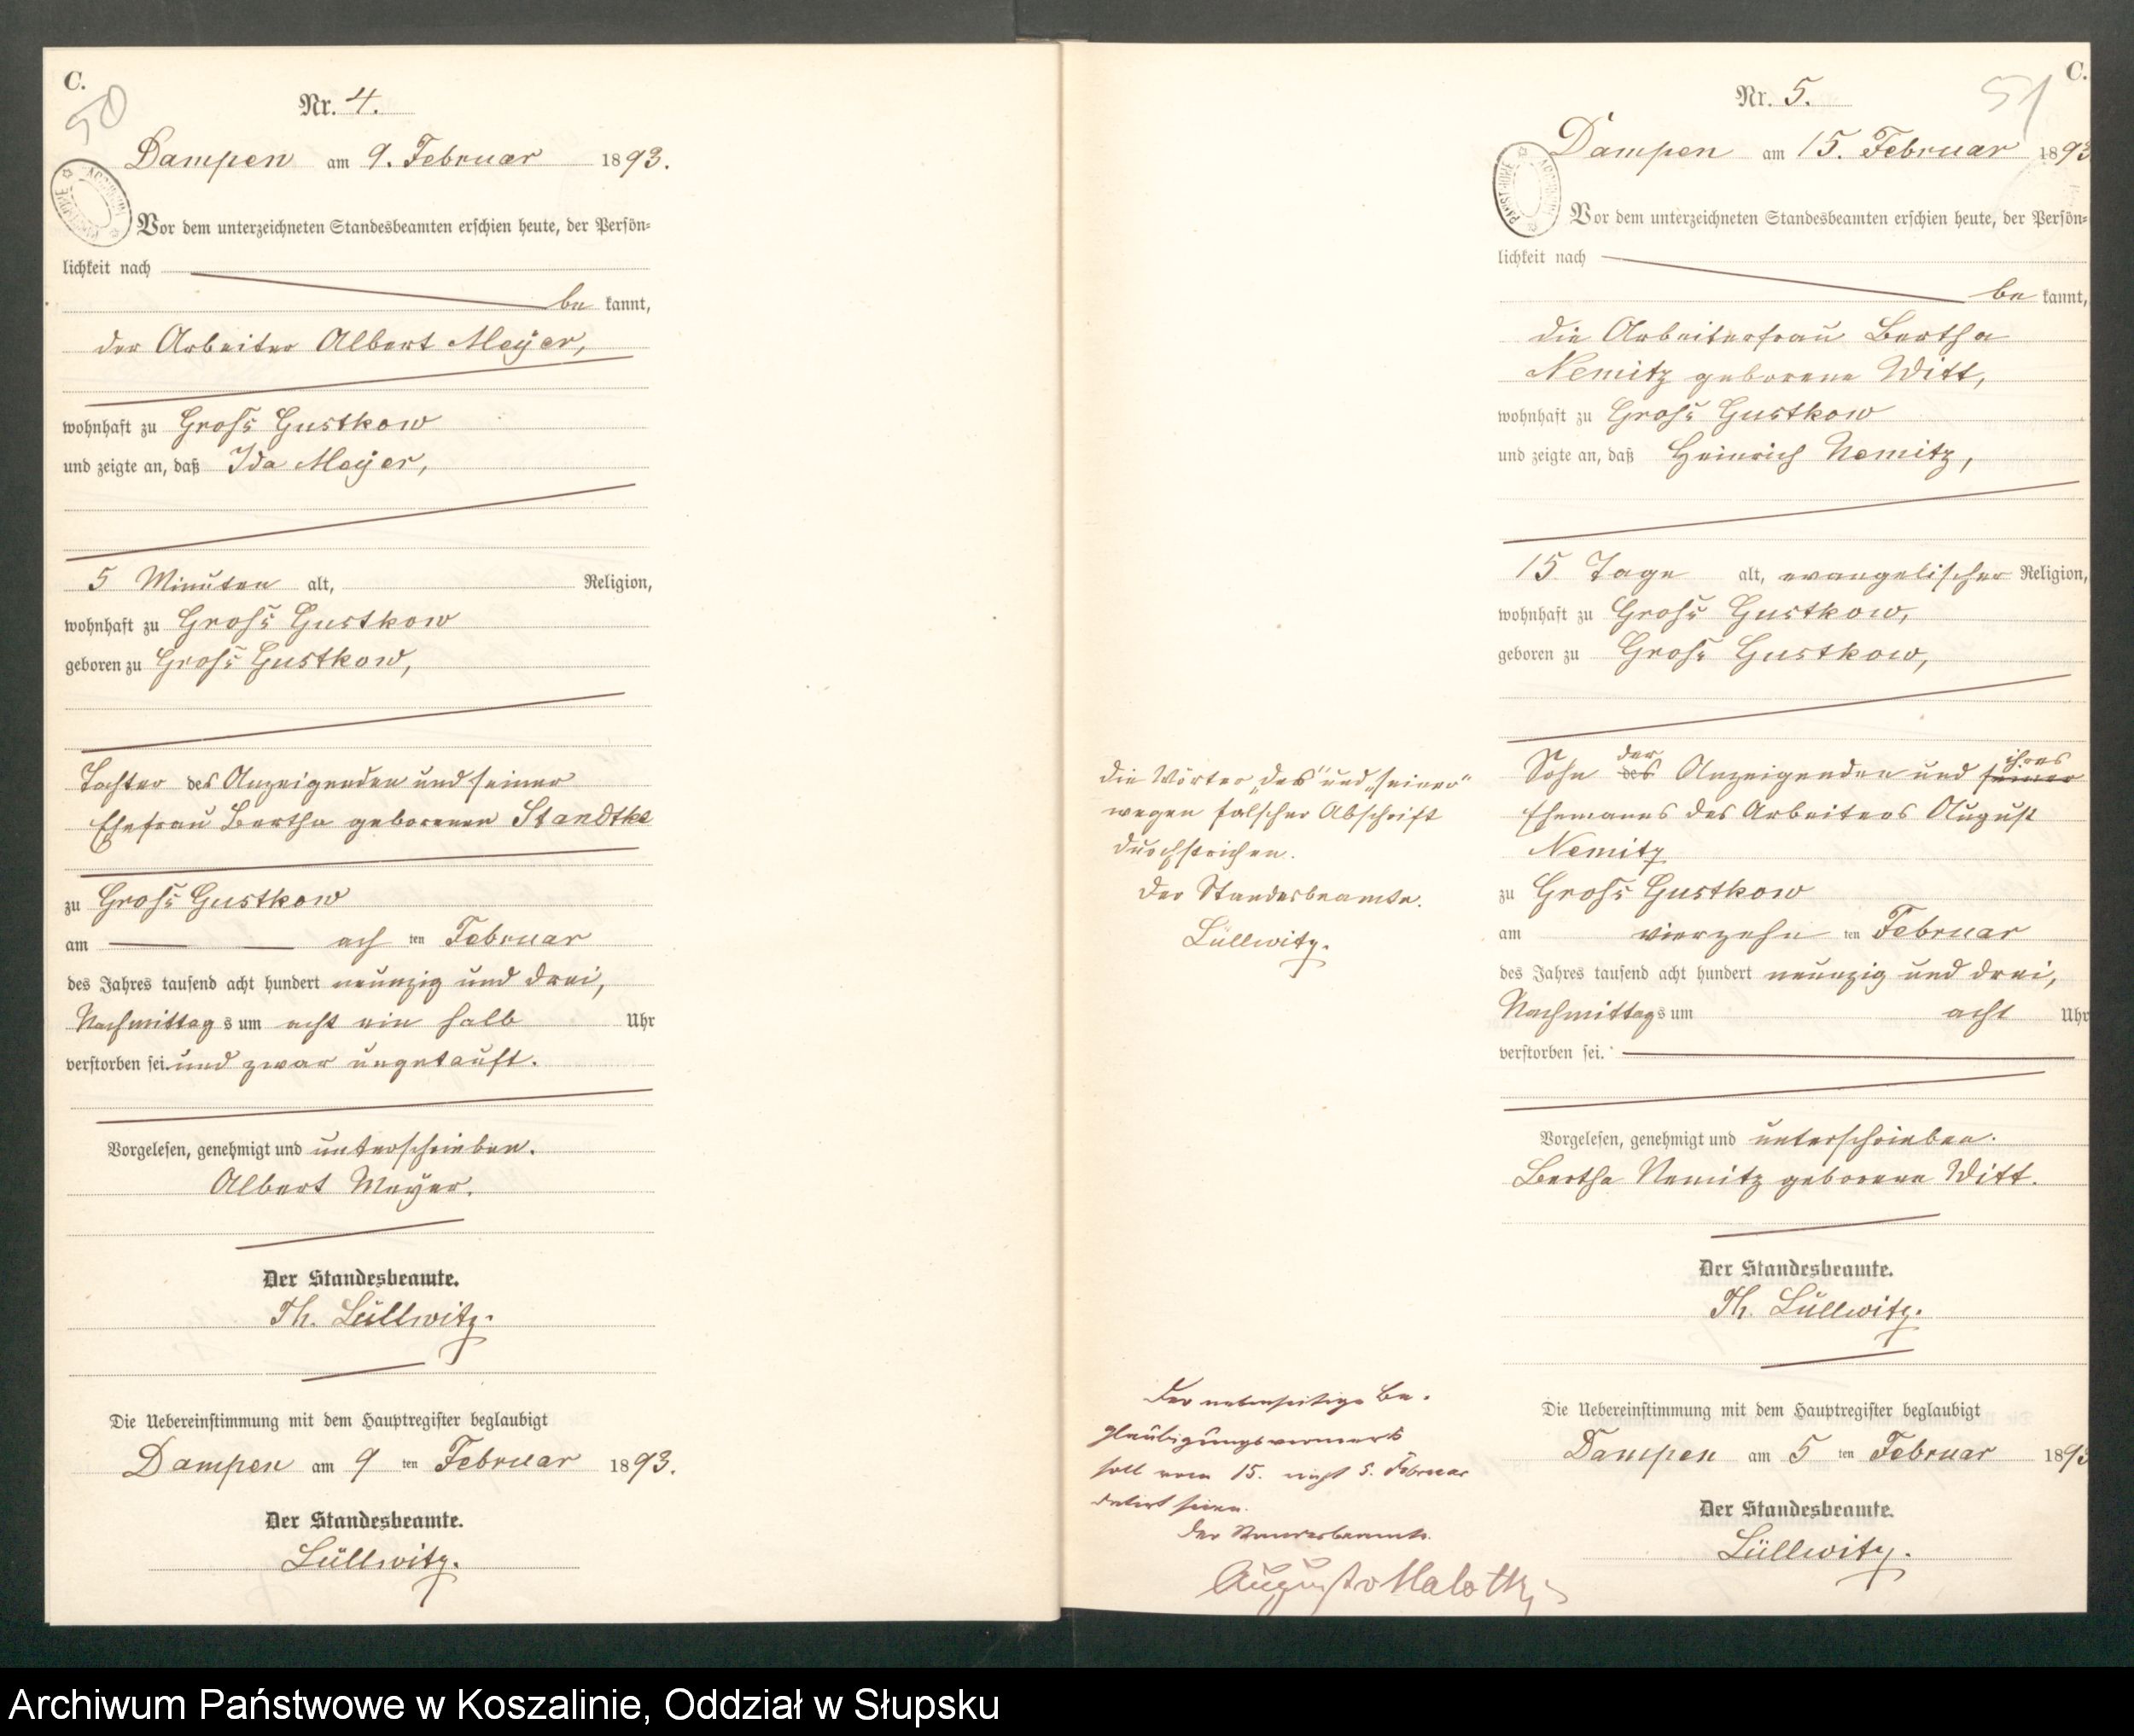 C.
50
Nr. 4.
Dampen am 9. Februar 1893.
Vor dem unterzeichneten Standesbeamten erschien heute, der Persön-
lichkeit nach
be kannt,
der Arbeiter Albert Meyer,
wohnhaft zu Gross Gustkow
und zeigte an, daß Ida Meyer,
5 Minuten alt, Religion,
wohnhaft zu Gross Gustkow
geboren zu Gross Gustkow,
Tochter des Anzeigenden und seiner
Ehefrau Bertha geborenen Standtke
zu Gross Gustkow
am ach ten Februar
des Jahres tausend acht hundert neunzig und drei,
Nachmittags um acht ein halb Uhr
verstorben sei. und zwar ungetauft.
Vorgelesen, genehmigt und unterschrieben.
Albert Meyer.
Der Standesbeamte.
Th. Lüllwitz.
Die Uebereinstimmung mit dem Hauptregister beglaubigt
Dampen am 9 ten Februar 1893.
Der Standesbeamte.
Lüllwitz.
die Wörter „des" und „seiner"
wegen falscher Abschrift
durchstrichen.
Der Standesbeamte.
Lüllwitz.
Der nebenseitige Be-
glaubigungsvermerk
soll vom 15. nicht 5. Februar
datirt sein.
Der Standesbeamte.
August
C.
51
Nr. 5.
Dampen am 15. Februar 1893
Vor dem unterzeichneten Standesbeamten erschien heute, der Persön-
lichkeit nach
be kannt,
die Arbeiterfrau Bertha
Nemitz geborene Witt,
wohnhaft zu Gross Gustkow
und zeigte an, daß Heinrich Nemitz,
15 Tage alt, evangelischer Religion,
wohnhaft zu Gross Gustkow,
geboren zu Gross Gustkow,
der ihres
Sohn des Anzeigenden und seiner
Ehemannes des Arbeiters August
Nemitz
zu Gross Gustkow
am vierzehn ten Februar
des Jahres tausend acht hundert neunzig und drei,
Nachmittags um acht Uhr
verstorben sei.
Vorgelesen, genehmigt und unterschrieben.
Bertha Nemitz geborene Witt.
Der Standesbeamte.
Th. Lüllwitz.
Die Uebereinstimmung mit dem Hauptregister beglaubigt
Dampen am 5 ten Februar 1893
Der Standesbeamte.
Lüllwitz.
Archiwum Państwowe w Koszalinie, Oddział w Słupsku